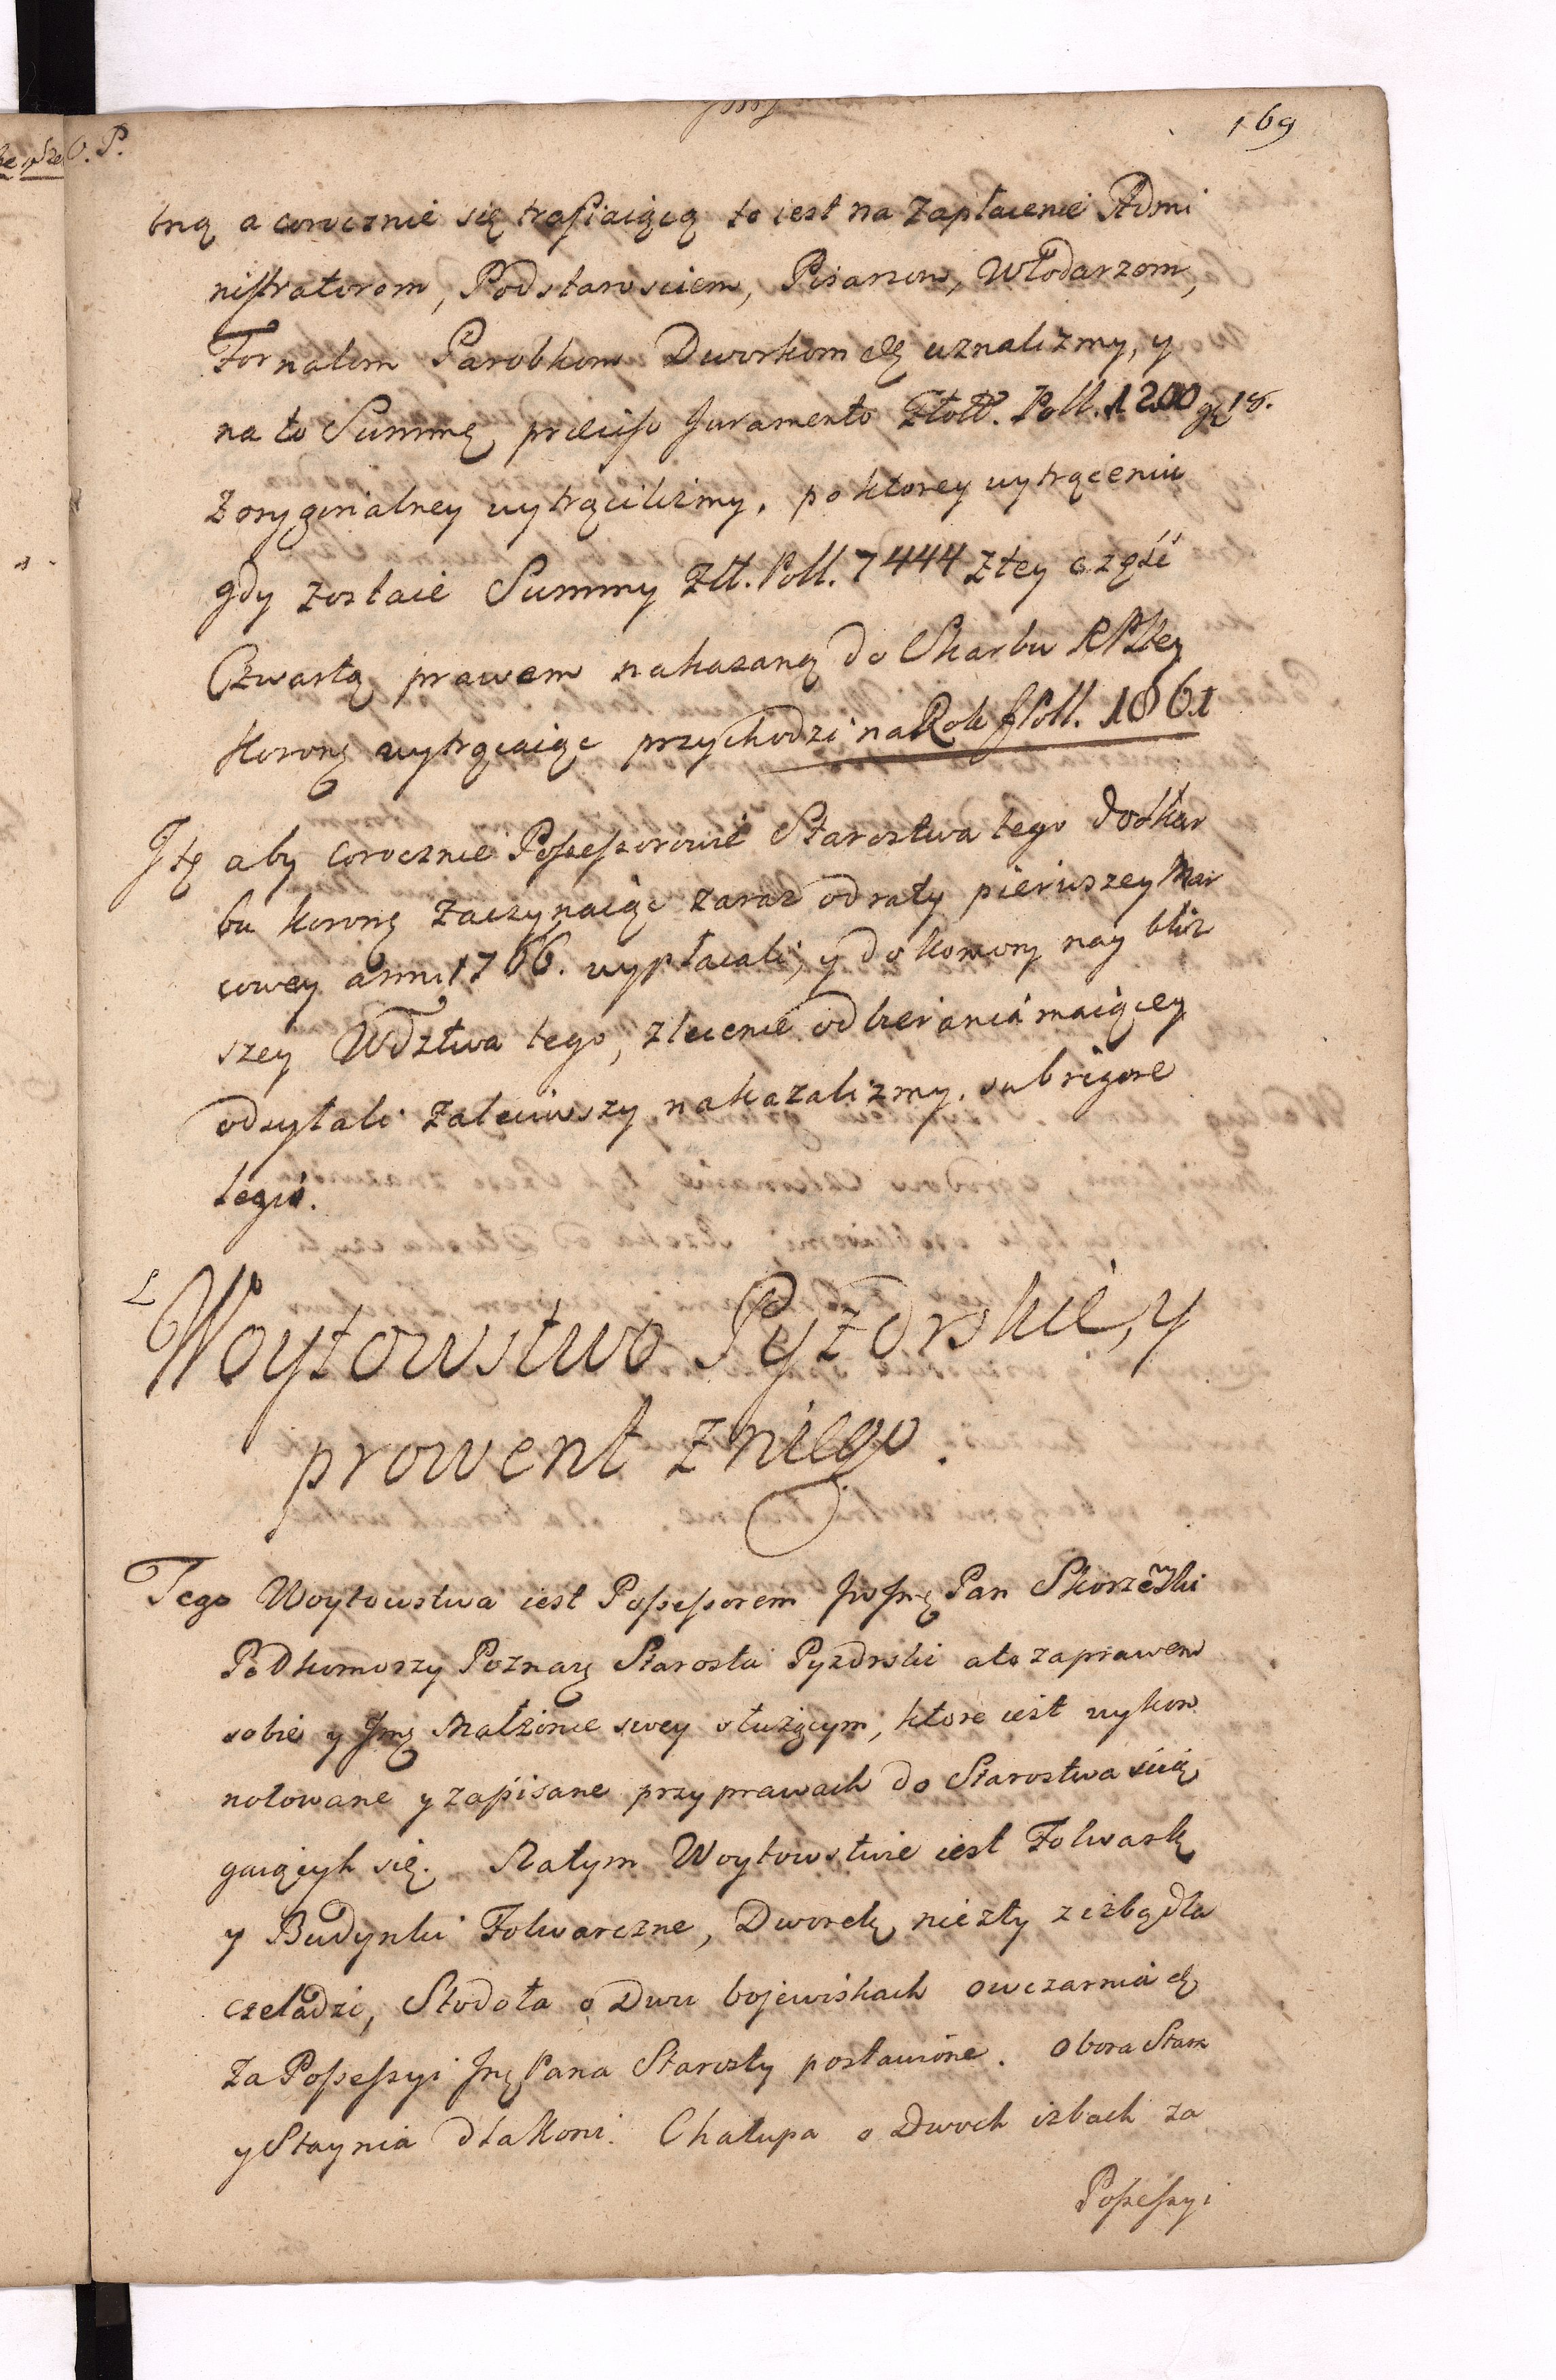 169
O. P.
tną a corocznie się trafiaiącą to iest na zapłacenie Admi
nistratorom, Podstarosciem, Pisarzom, Włodarzom,
Fornalom Parobkom Dworkom &c uznalizmy, y
na to Summę præciso Juramento Złott. Poll. 1200 gr 18.
z oryginalney wytrącilizmy, po ktorey wytrąceniu
gdy zostaie Summy Złt. Poll. 7444 z tey część
Czwartą prawem nakazaną do Skarbu RPltey
Koronę wytrącaiąc przychodzi na Rok f Poll. 1861
Itę aby corocznie Possessorowie Starostwa tego do Skar
bu Koronę zaczynaiąc zaraz od raty pierwszey Mar
cowey anni 1766. wypłacali, y do komory nay bliz
szey Wdztwa tego, zlecenie odbierania maiącey
odsyłali zaleciwszy nakazalizmy. sub rigore
legis.
Woytowstwo Pyzdrskie, y
prowent z niego.
Tego Woytowstwa iest Possessorem JWJmę Pan Skorzewski
Podkomorzy Poznarę Starosta Pyzdrski a to za prawem
sobie y Jmę Małzonce swey słuzącym, ktore iest wykon
notowane y zapisane przy prawach do Starostwa scią
gaiących się. Na tym Woytowstwie iest Folwark
y Budynki Folwarczne, Dworek niezły z izbą dla
czeladzi, Stodoła o Dwu bojewiskach owczarnia &
za Possessyi Jmę Pana Starosty postawione. Obora Stara
y Staynia dla Koni. Chałupa o Dwoch izbach za
Possessyi